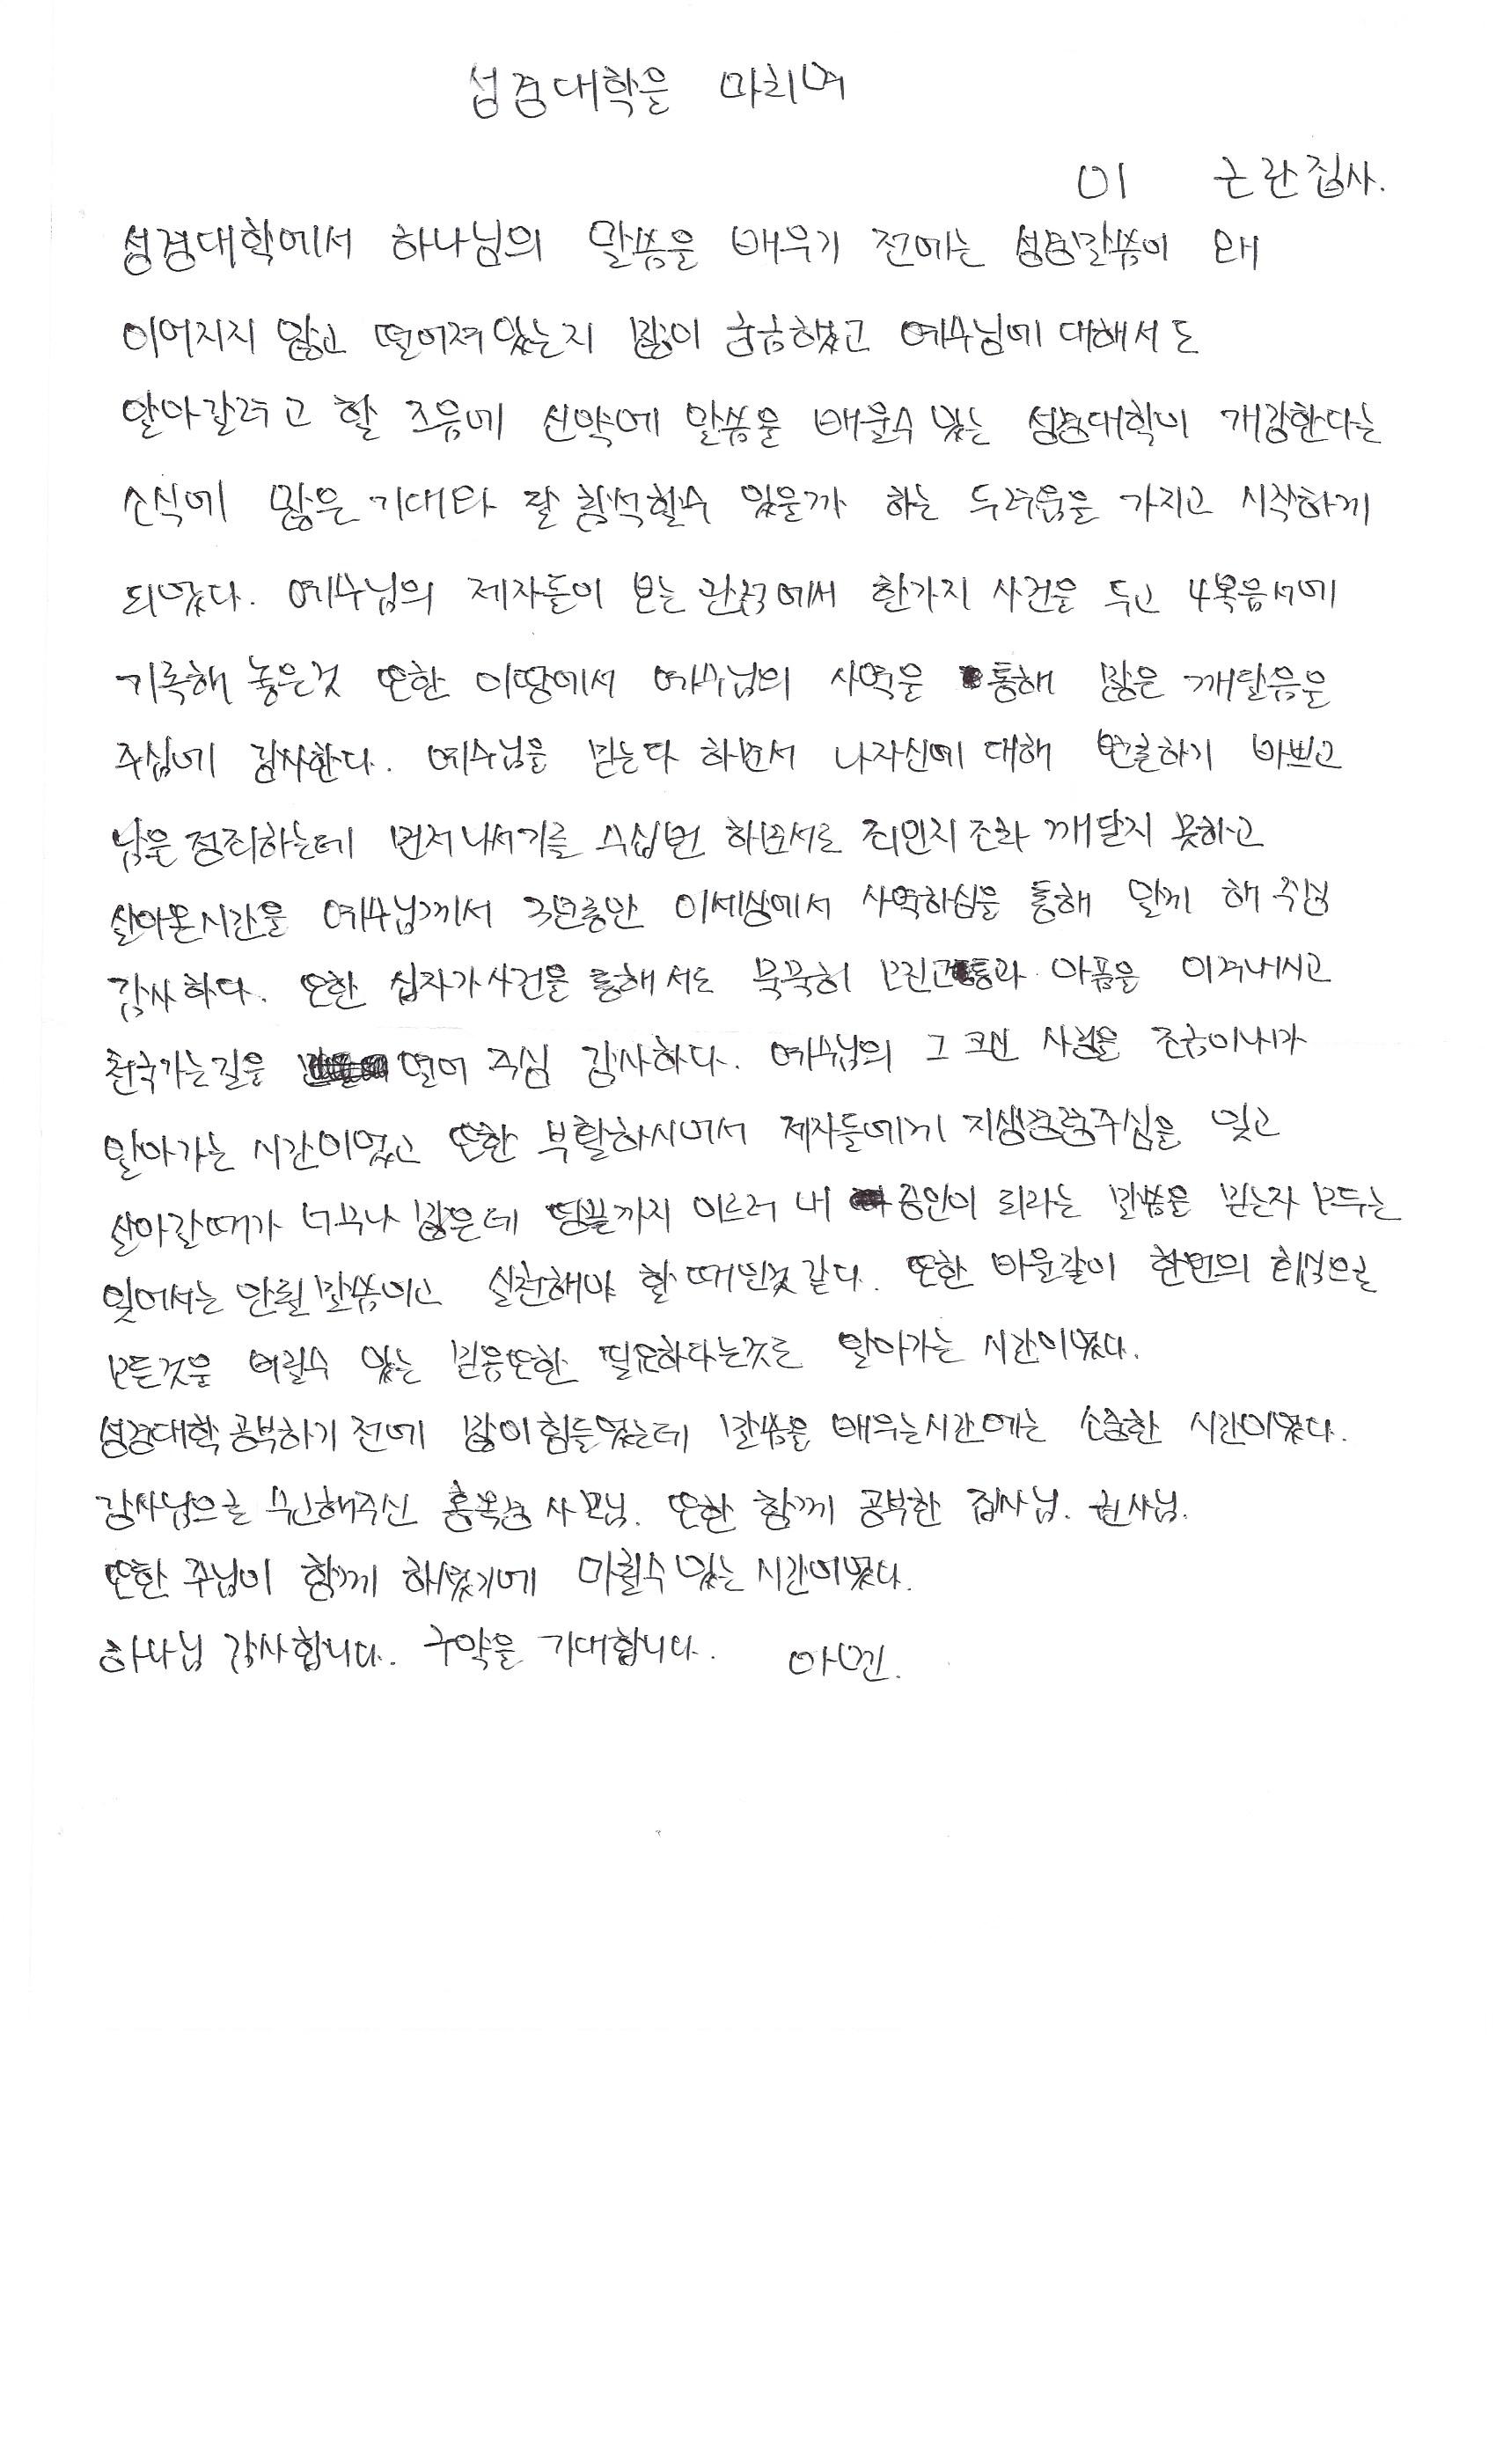 성경대학을 마치며
이 근란집사.
성경대학에서 하나님의 말씀을 배우기 전에는 성경말씀이 왜
이어지지 않고 떨어져있는지 많이 궁금했고 예수님에 대해서도
알아갈려고 할 즈음에 신약에 말씀을 배울수 있는 성경대학이 개강한다는
소식에 많은 기대와 잘 참석할수 있을까 하는 두려움을 가지고 시작하게
되었다. 예수님의 제자들이 보는 관점에서 한가지 사건을 두고 4복음서에
기록해 놓은것 또한 이땅에서 예수님의 사역을 통해 많은 깨달음을
주심에 감사한다. 예수님을 믿는다 하면서 나자신에 대해 변론하기 바쁘고
남을 정죄하는데 먼저나서기를 수십번 하면서도 죄인지조차 깨닫지 못하고
살아온시간을 예수님께서 3년동안 이세상에서 사역하심을 통해 알게 해 주심
감사하다. 또한 십자가사건을 통해서도 묵묵히 모진고통과 아픔을 이겨내시고
천국가는길을 열어 주심 감사하다. 예수님의 그 크신 사랑을 조금이나마
알아가는 시간이었고 또한 부활하시면서 제자들에게 지상명령주심을 잊고
살아갈때가 너무나 많은데 땅끝까지 이르러 내 증인이 되라는 말씀을 믿는자 모두는
잊어서는 안될 말씀이고 실천해야 할 때인것 같다. 또한 바울같이 한번의 회심으로
모든것을 버릴수 있는 믿음또한 필요하다는것도 알아가는 시간이었다.
성경대학 공부하기 전에 많이 힘들었는데 말씀을 배우는시간에는 소중한 시간이었다.
강사님으로 수고해주신 홍옥경 사모님. 또한 함께 공부한 집사님. 권사님.
또한 주님이 함께 하셨기에 마칠수 있는 시간이었다.
하나님 감사합니다. 구약을 기대합니다. 아멘.